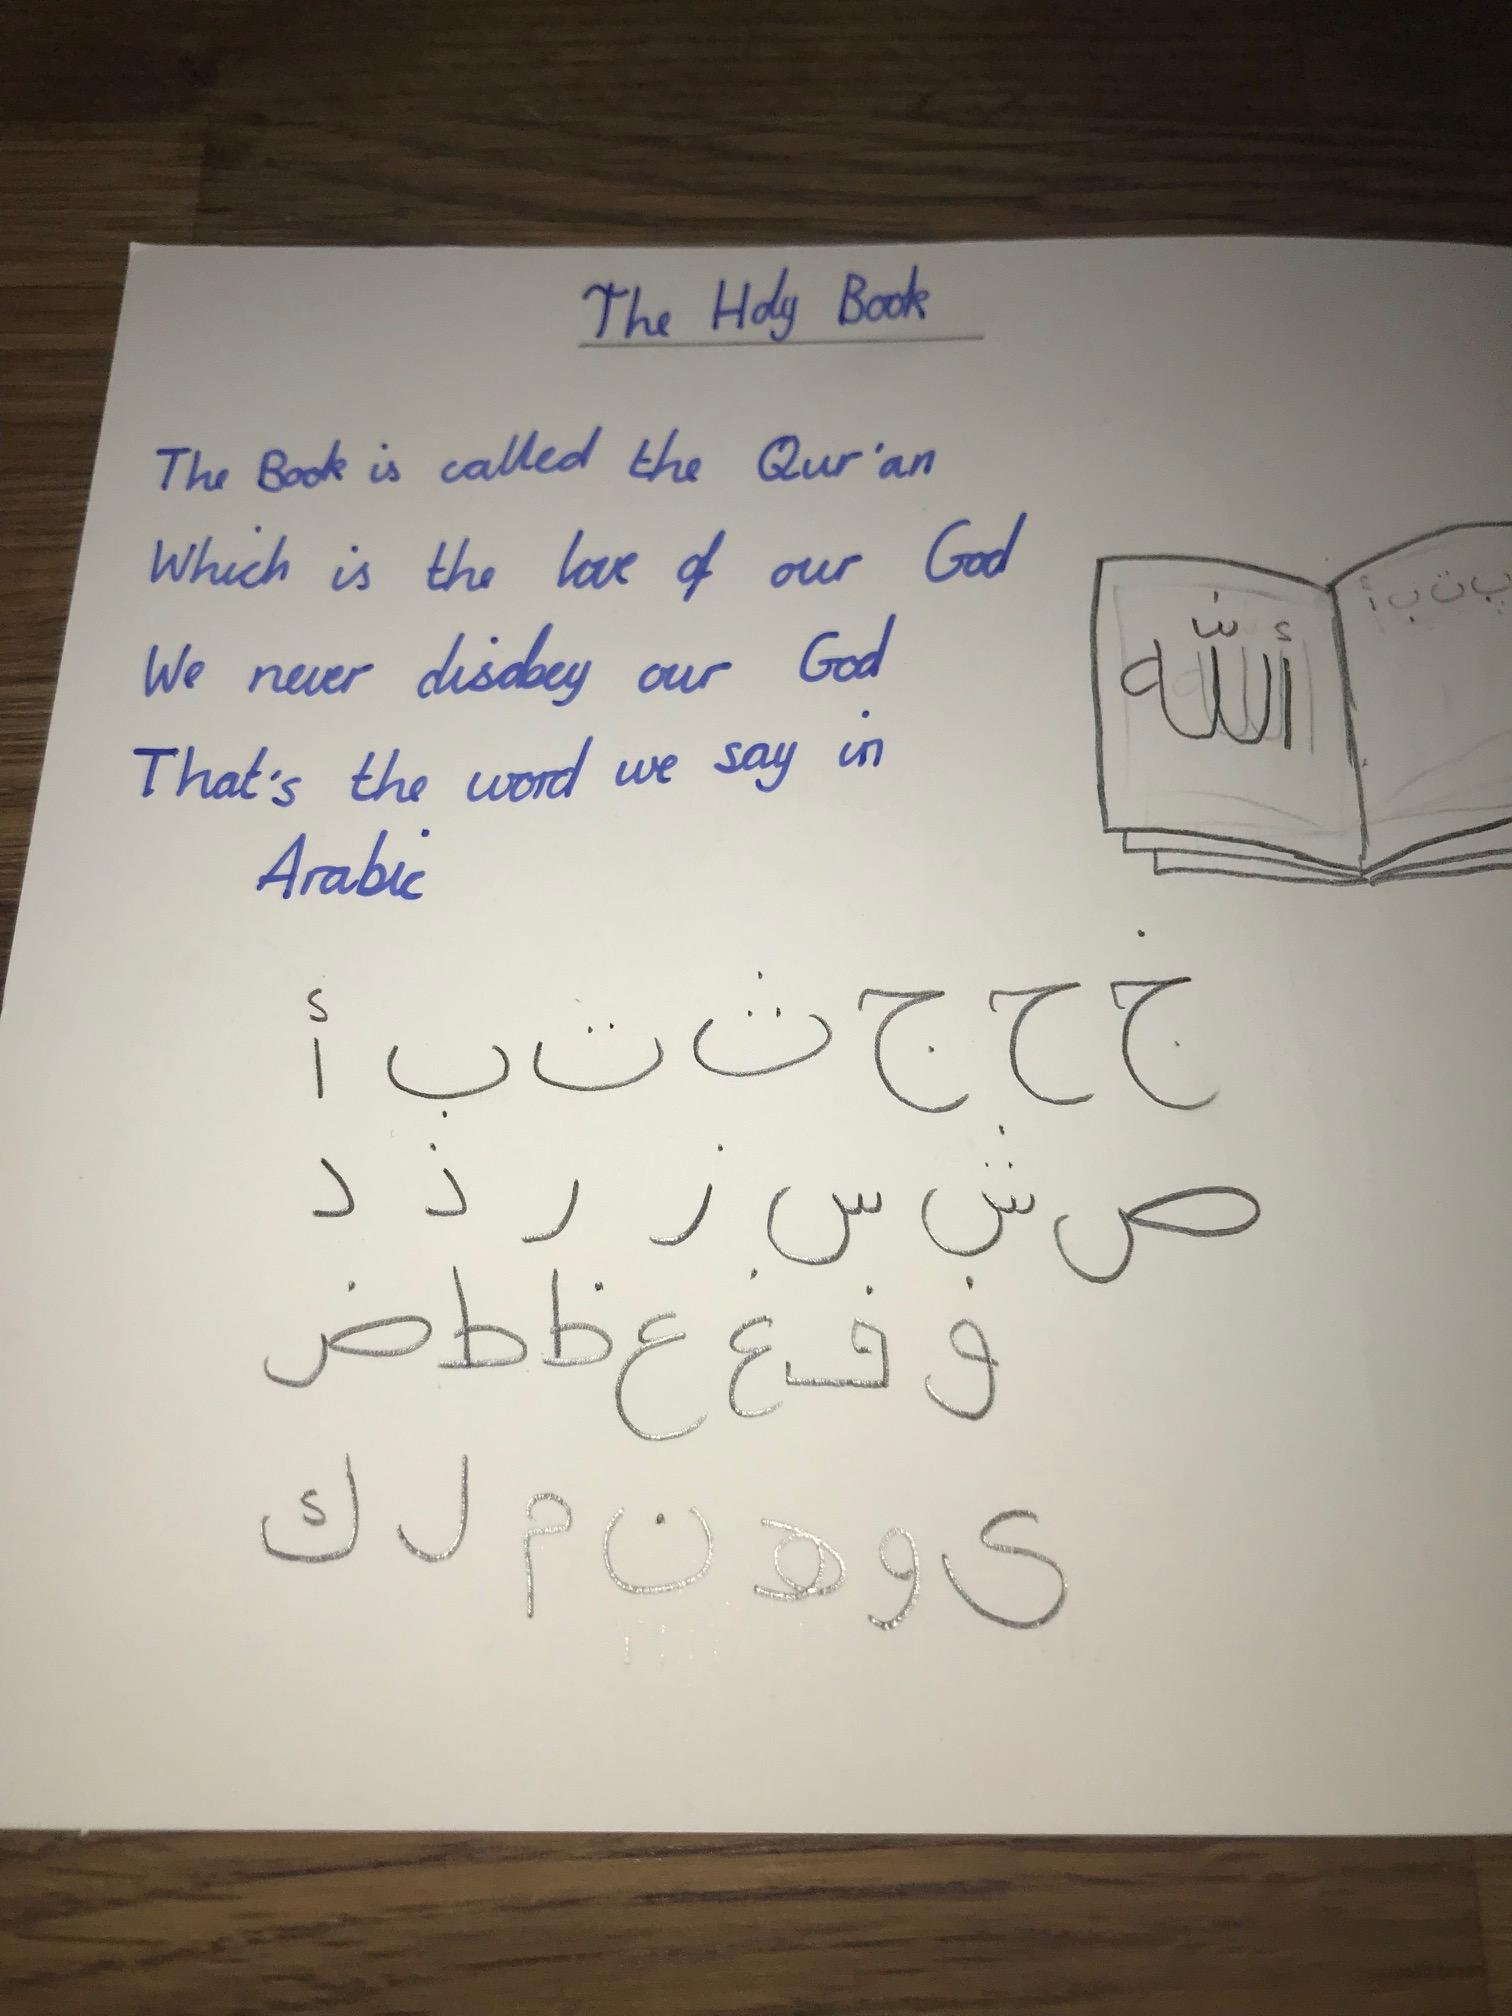 The Holy Book
The Book is called the Qur'an
Which is the love of our God
We never disobey our God
That's the word we say in
Arabic
أللّه
أ ب ت
أ ب ت ث ج ح خ
د ذ ر ز س ش ص
ض ط ظ ع غ ف ق
ك ل م ن ه و ى